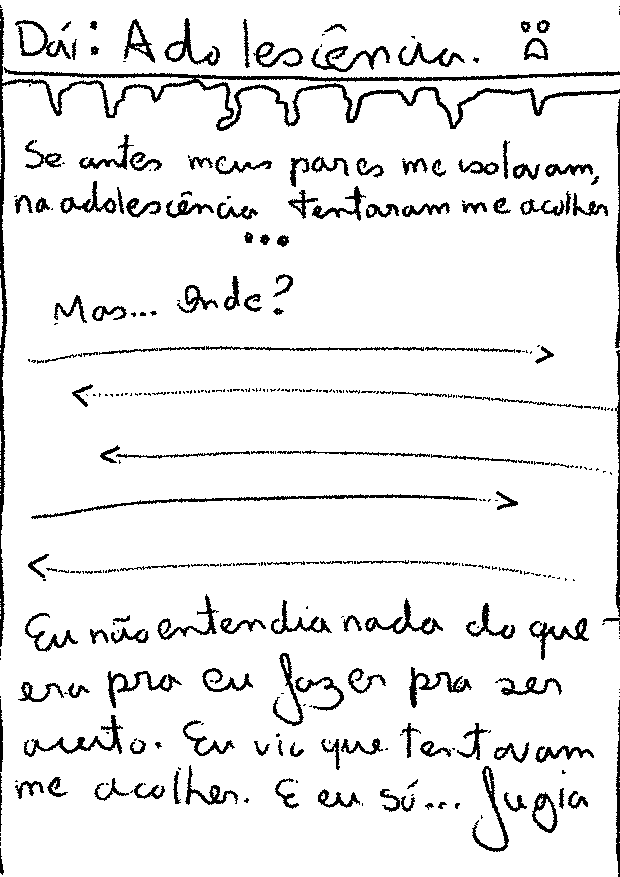 Daí: Adolescência.
Se antes meus pares me isolavam,
na adolescência tentaram me acolher
...
Mas... Onde?
Eu não entendia nada do que
era pra eu fazer pra ser
aceito. Eu vic que tentavam
me acolher. E eu só... fugia